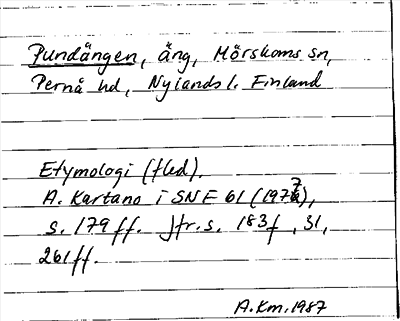 Pundängen, äng, Mörskoms sn,
Pernå hd, Nylands l. Finland
Etymologi (fled).
A. Kartano i SNF 61 (1977),
s. 179 ff. Jfr. s. 183 f, 31,
261 ff.
A.Km. 1987